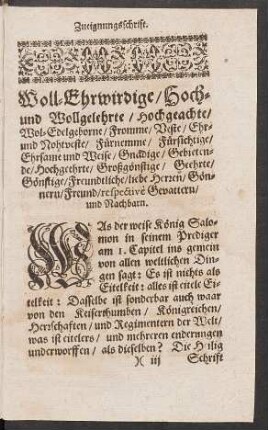 Zueignungsschrifft.
Woll-Ehrwirdige/ Hoch-
und Wollgelehrte/ Hochgeachte/
Wol-Edelgeborne/ Fromme/ Veste/ Ehr-
und Nohtveste/ Fürnemme/ Fürsichtige/
Ehrsame und Weise/ Gnädige/ Gebieten-
de/ Hochgeehrte/ Großgönstige/ Geehrte/
Gönstige/ Freundtliche/ liebe Herren/ Gön-
nern/ Freund/ respectivè Gevattern/
und Nachbarn.
WAs der weise König Salo-
mon in seinem Prediger
am 1. Capitel ins gemein
von allen weltlichen Din-
gen sagt: Es ist nichts als
Eitelkeit: alles ist eitele Ei-
telkeit: Dasselbe ist sonderbar auch waar
von den Keiserthumben/ Königreichen/
Herrschaften/ und Regimentern der Welt/
was ist eitelers/ und mehreren enderungen
underworffen/ als dieselben? Die Heilig
)( iij Schrift